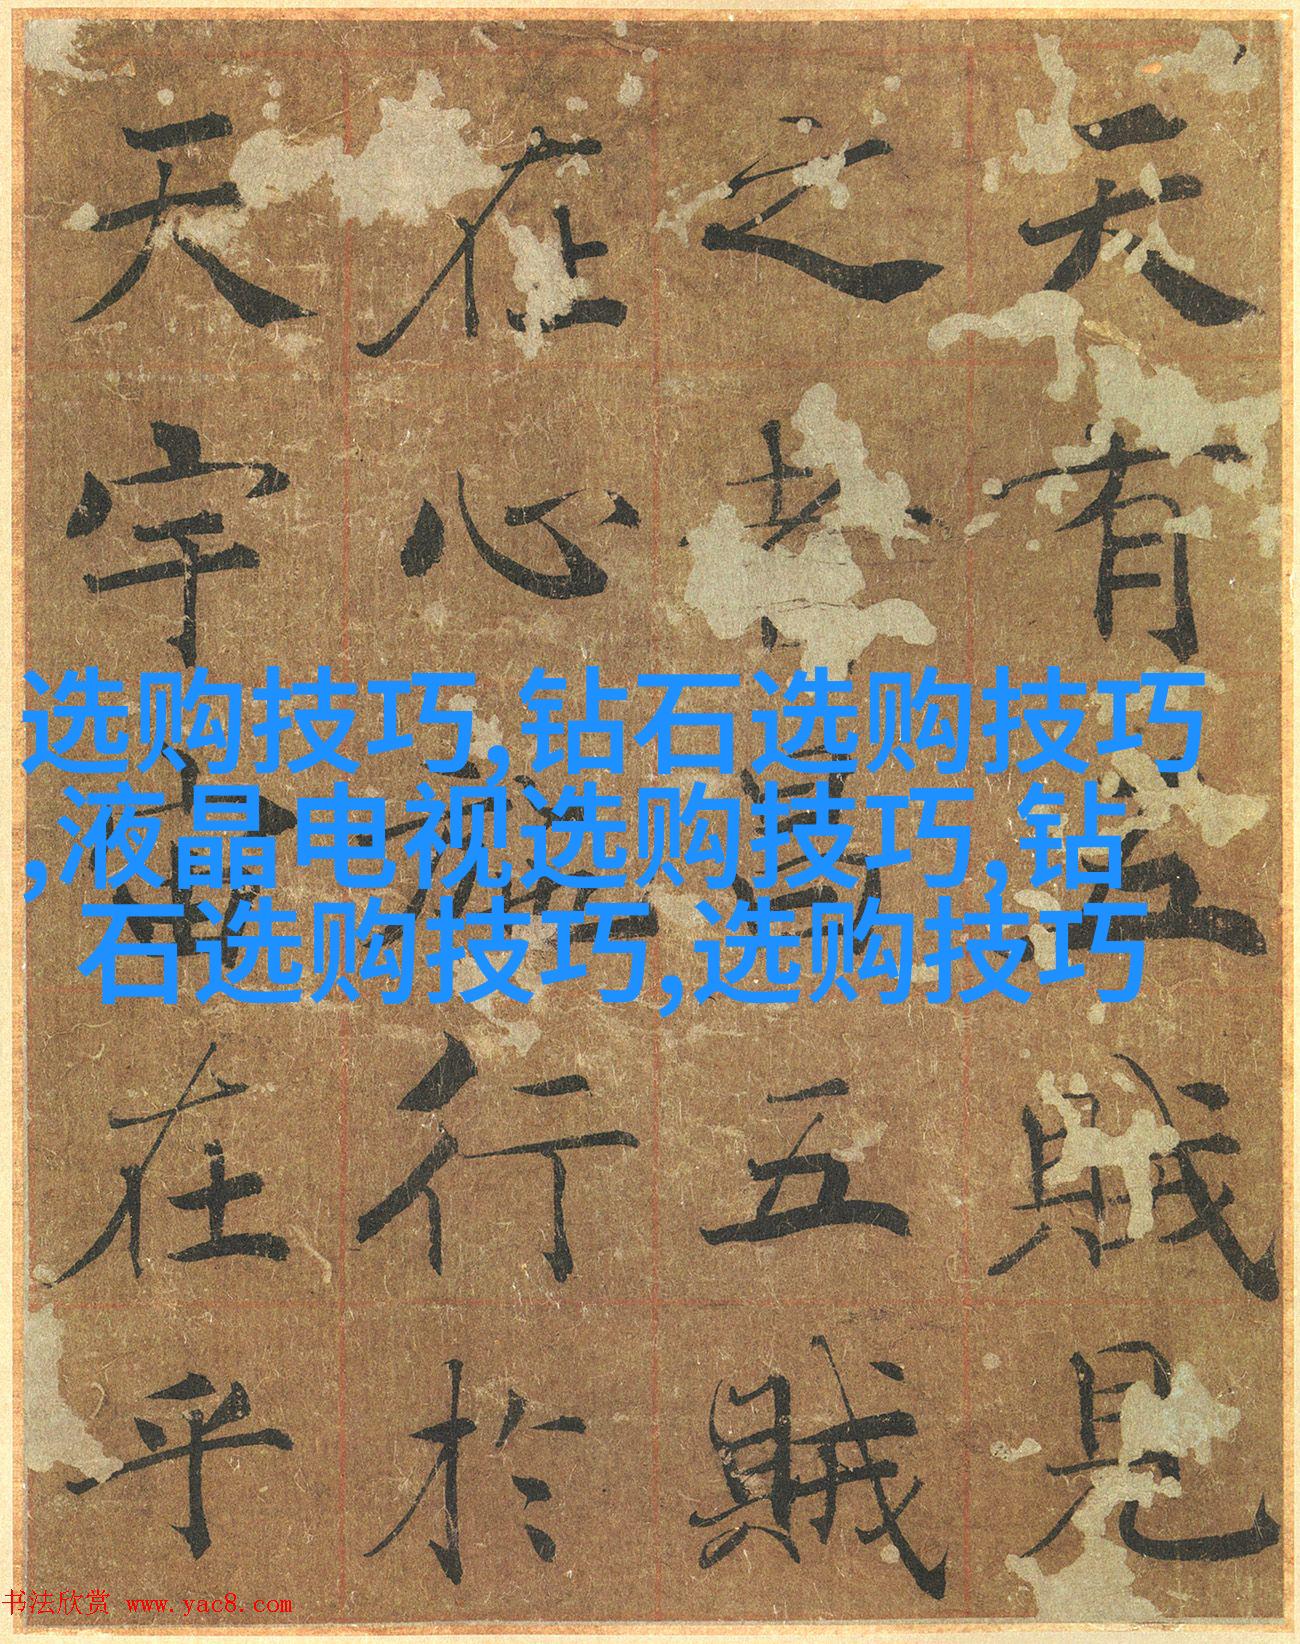 天有五賊見
之者昌五賊
在心施行於
天宇宙在乎
选购技巧,钻石选购技巧
,液晶电视选购技巧,钻
石选购技巧,选购技巧
书法欣赏 www.yac8.com